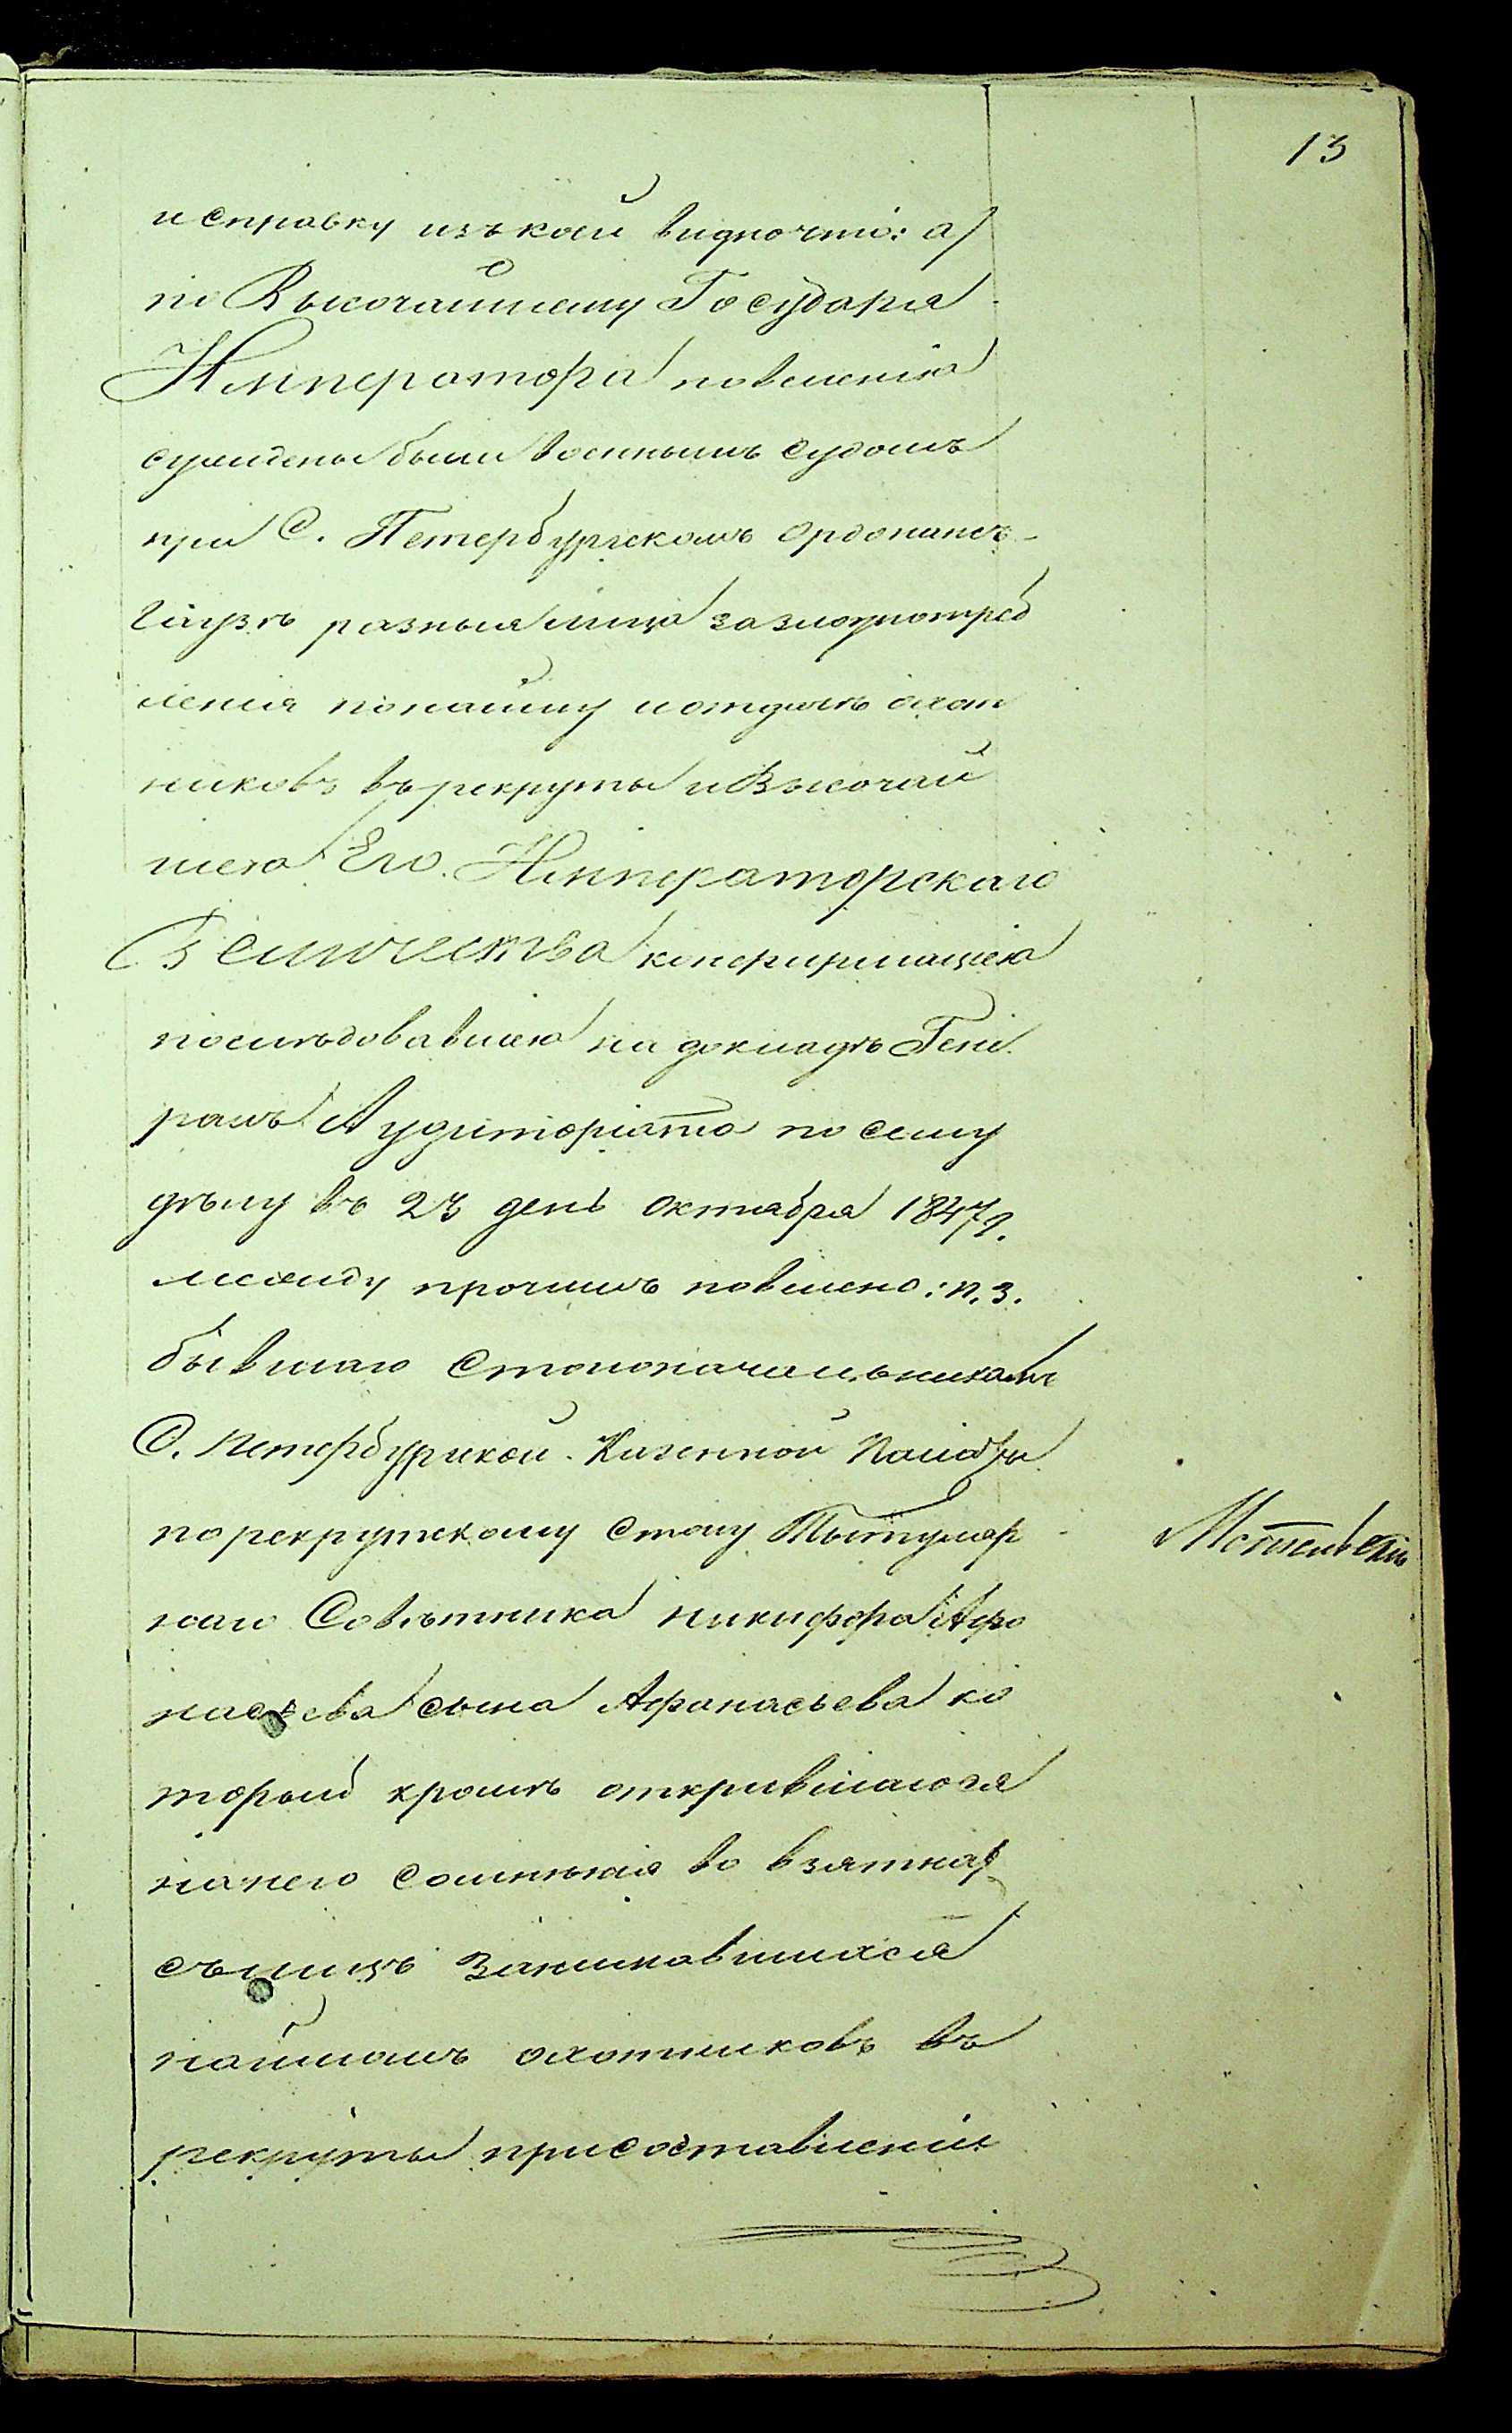 13
и справку изъ коей видно что: а)
по Высочайшему Государя
Императора повеленію
суждены были военнымъ судомъ
при С. Петербургскомъ Ордонансъ-
Гаузѣ разныя лица за злоупотреб
ленія по найму и отдачѣ охот
никовъ въ рекруты и Высочай
шею Его Императорскаго
Величества конфирмаціею
послѣдовавшею на докладѣ Гене
ралъ Аудиторіата по сему
дѣлу въ 23 день Октября 1847 г.
между прочимъ повелено: п. 3.
бывшаго Столоначальникомъ
С. Петербургской Казенной Палаты
по рекрутскому Столу Тытуляр
наго Совѣтника Никифора Афо
насьева сына Афанасьева ко
торый кромѣ открывшагося
на него сомнѣнія во взяткахъ
съ лицъ занимавшихся
наймомъ охотниковъ въ
рекруты при составленіи